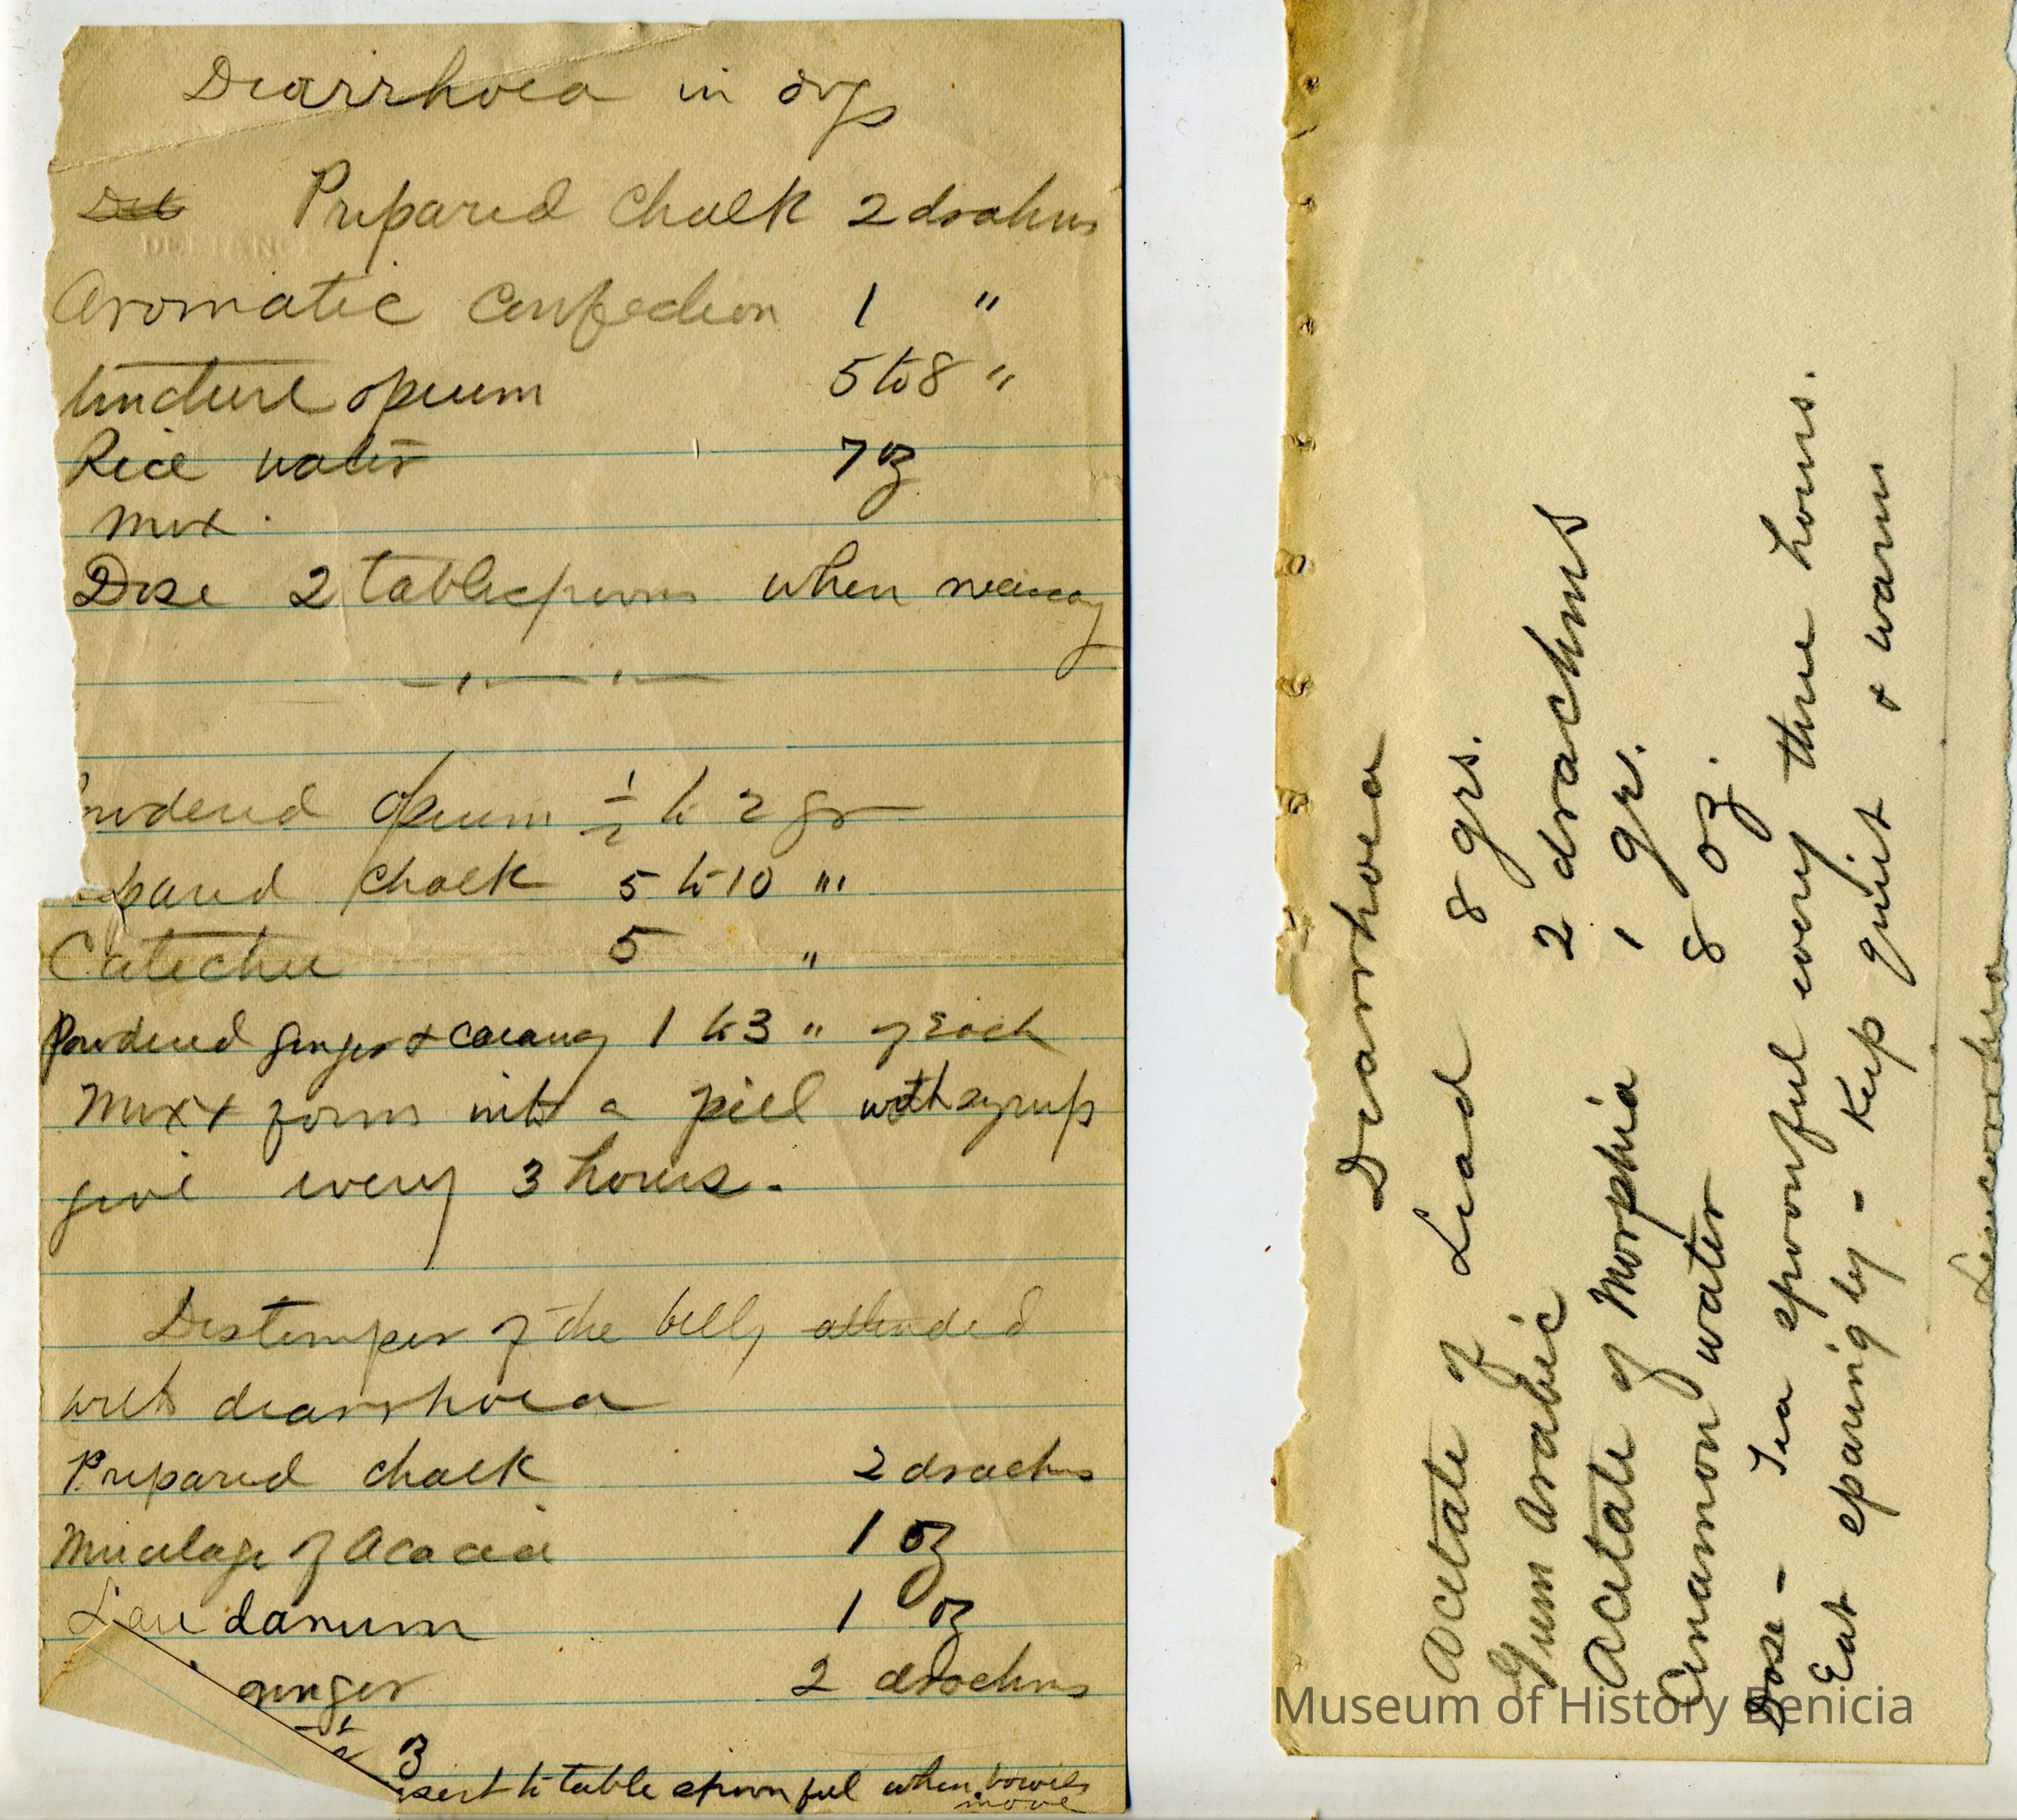 Diarrhoea in dogs
Prepared Chalk 2 drahms
Aromatic Confection 1 "
tincture opium 5 to 8 "
Rice water 7 oz
Mix.
Dose 2 tablespoons when
owdered Opium 1/2 to 2 gr
epared chalk 5 to 10 "'
Catechu 5 "
Powdered ginger & 1 to 3 " of Each
Mix & form into a pill with syrup
give every 3 hours.
Distemper of the belly attended
with diarrhoea
Prepared chalk 2 drachms
Mucilage of Acacia 1 oz
Laudanum 1 oz
ginger 2 drachms
3
ssert to table spoonful when bowels
move
Diarrhoea
Acetate of Lead 8 grs.
Gum Arabic 2 drachms
Acetate of Morphia 1 gr.
Cinnamon water 8 oz.
Dose - Tea spoonful every three hours.
Eat sparingly - Keep quiet & warm
Leucorrhea
Museum of History Benicia